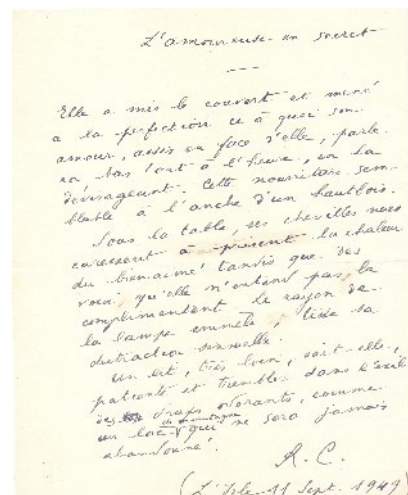 L'amoureuse en secret
Elle a mis le couvert et mené
à la perfection ce à quoi son
amour, assis en face d'elle, parle-
ra bas tout à l'heure, en la
dévisageant. Cette nourriture sem-
blable à l'anche d'un hautbois.
Sous la table, ses chevilles nues
caressent à présent la chaleur
du bien-aimé tandis que des
voix, qu'elle n'entend pas, la
complimentent. Le rayon de
la lampe emmêle, tisse sa
distraction sensuelle.
Un lit, très loin, sait-elle,
patiente et tremble dans l'exil
des draps odorants, comme
un lac de montagne qui ne sera jamais
abandonné.
R. C.
(L'Isle 11 Sept. 1949)